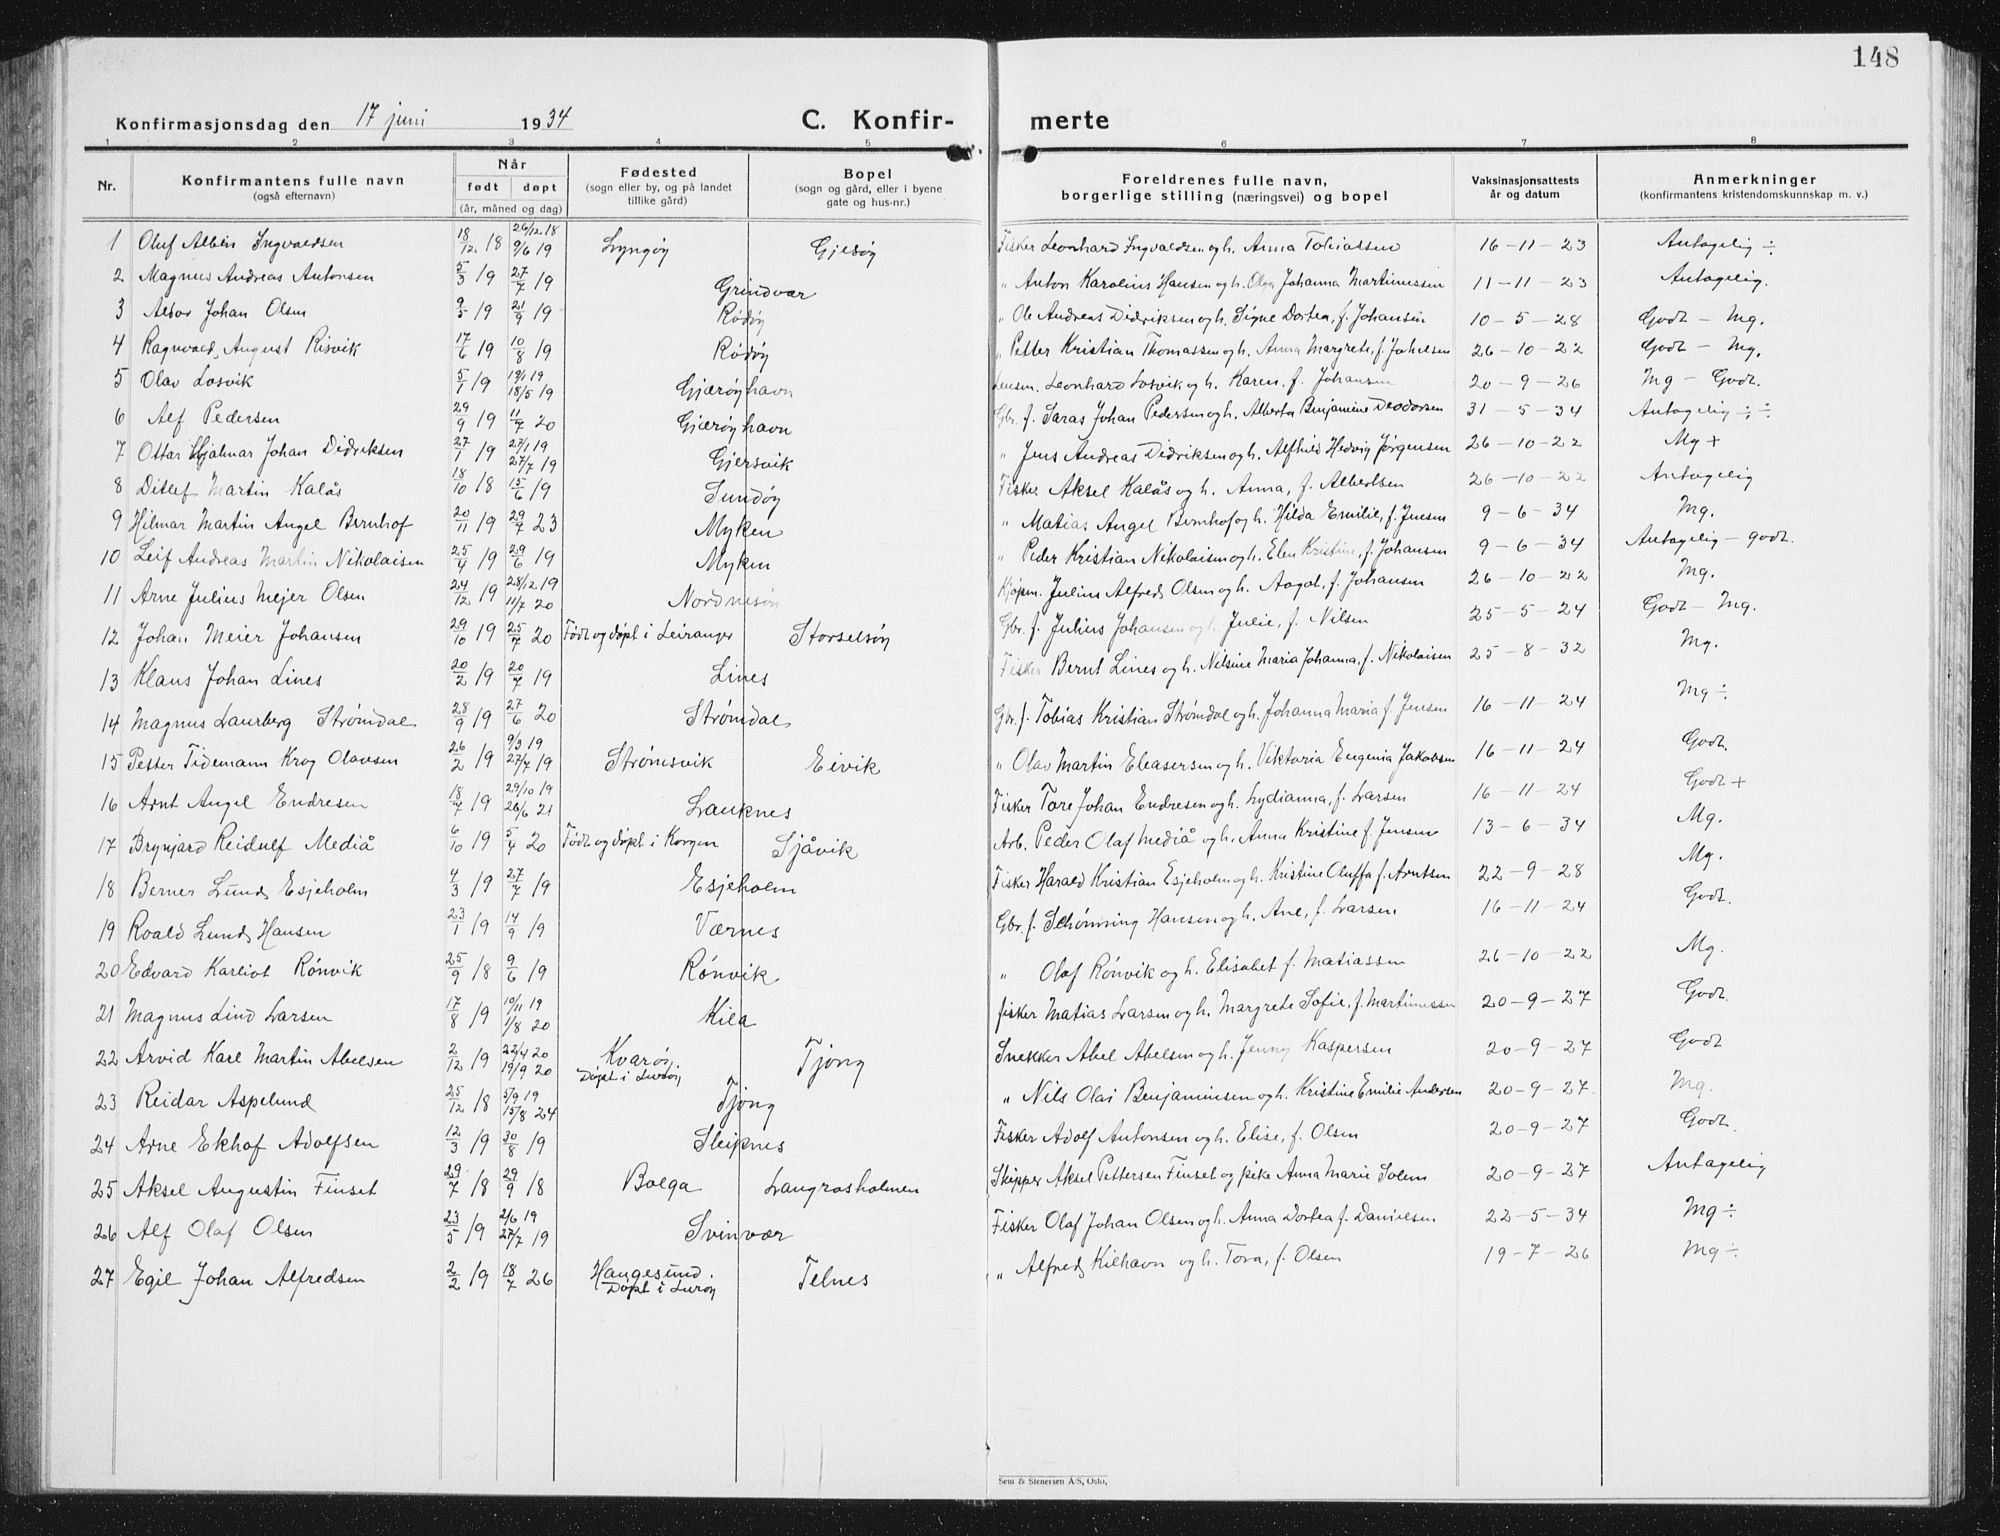 148
Konfirmasjonsdag den 17 juni 1934 C. Konfir- merte
1 2 3 4 5 6 7 8
Nr. Konfirmantens fulle navn (også efternavn) Når født døpt (år, måned og dag) Fødested (sogn eller by, og på landet tillike gård) Bopel (sogn og gård, eller i byene gate og hus-nr.) Foreldrenes fulle navn, borgerlige stilling (næringsvei) og bopel Vaksinasjonsattests år og datum Anmerkninger (konfirmantens kristendomskunnskap m. v.)
1 Oluf Albin Ingvaldsen 18/12 18 26/12 18 9/6 19 Lyngøy Gjesøy Fisker Leonhard Ingvaldsen og h. Anna Tobiassen 16-11-23 Antagelig ÷
2 Magnus Andreas Antonsen 5/3 19 27/7 19 Grindvær " Anton Karolius Hansen og h. Olga Johanna Martinussen 11-11-23 Antagelig.
3 Johan Olsen 9/5 19 21/9 19 Rødøy " Ole Andreas Didriksen og h. Signe Dortea, f. Johansen 10-5-28 Godt - Mg.
4 Ragnvald August Risvik 17/6 19 10/8 19 Rødøy " Petter Kristian Thomassen og h. Anna Margrete, f. Johnsen 26-10-22 Godt - Mg.
5 Olav Losvik 5/1 19 19/1 19 18/5 19 Gjærøyhavn Lensm. Leonhard Losvik og h. Karen, f. Johansen 20-9-26 Mg - Godt.
6 Alf Pedersen 29/9 19 11/7 20 Gjærøyhavn Gbr. f. Saras Johan Pedersen og h. Alberta Benjamine Deodorsen 31-5-34 Antagelig ÷ ÷
7 Ottar Hjalmar Johan Didriksen 27/1 19 27/1 19 27/7 19 Gjersvik " Jens Andreas Didriksen og h. Alfhild Hedvig Jørgensen 26-10-22 Mg +
8 Ditlef Martin Kalås 18/10 18 15/6 19 Sundøy Fisker Aksel Kalås og h. Anna, f. Albertsen 26-10-22 Antagelig
9 Hilmar Martin Angel Bernhof 20/11 19 29/7 23 Myken " Matias Angel Bernhof og h. Hilda Emilie, f. Jensen 9-6-34 Mg.
10 Leif Andreas Martin Nikolaisen 25/4 19 29/6 19 Myken " Peder Kristian Nikolaisen og h. Elen Kristine, f. Johansen 9-6-34 Antagelig - godt.
11 Arne Julius Mejer Olsen 24/12 19 28/12 19 11/7 20 Nordnesøy Kjøpm. Julius Alfred Olsen og h. Aagot, f. Johansen 26-10-22 Mg.
12 Johan Meier Johansen 29/10 19 25/7 20 Født og døpt i Leiranger Storselsøy Gbr. f. Julius Johansen og h. Julie, f. Nilsen 25-5-24 Godt - Mg.
13 Klaus Johan Lines 20/2 19 20/7 19 Lines Fisker Bernt Lines og h. Nilsine Maria Johanna, f. Nikolaisen 25-8-32 Mg.
14 Magnus Laurberg Strømdal 28/9 19 27/6 20 Strømdal Gbr. f. Tobias Kristian Strømdal og h. Johanna Maria f. Jensen 16-11-24 Mg ÷
15 Petter Tidemann Krog Olavsen 26/2 19 9/3 19 27/7 19 Strømsvik Eivik " Olav Martin Eleasersen og h. Viktoria Eugenia Jakobsen 16-11-24 Godt.
16 Arnt Angel Endresen 18/7 19 29/10 19 26/6 21 Lauknes Fisker Tore Johan Endresen og h. Lydianna, f. Larsen 16-11-24 Godt +
17 Brynjard Reidulf Mediå 6/10 19 5/4 20 Født og døpt i Korgen Sjåvik Arb. Peder Olaf Mediå og h. Anna Kristine f. Jensen 13-6-34 Mg.
18 Berner Lund Esjeholm 4/3 19 27/7 19 Esjeholm Fisker Harald Kristian Esjeholm og h. Kristine Oluffa f. Arntsen 22-9-28 Mg.
19 Roald Lund Hansen 23/1 19 14/9 19 Værnes Gbr. f. Schønning Hansen og h. Ane, f. Larsen 16-11-24 Godt.
20 Edvard Karliot Rønvik 25/9 18 9/6 19 Rønvik " Olaf Rønvik og h. Elisabet f. Matiassen 26-10-22 Mg.
21 Magnus Lind Larsen 17/8 19 10/11 19 1/8 20 Kila fisker Matias Larsen og h. Margrete Sofie, f. Martinussen 20-9-27 Godt.
22 Arvid Karl Martin Abelsen 2/12 19 22/4 20 19/9 20 Kvarøy Døpt i Lurøy Tjong Snekker Abel Abelsen og h. Jenny Kaspersen 20-9-27 Godt
23 Reidar Aspelund 25/12 18 5/9 19 15/8 24 Tjong " Nils Olai Benjaminsen og h. Kristine Emilie Andersen 20-9-27 Mg.
24 Arne Ekhof Adolfsen 12/3 19 30/8 19 Sleipnes Fisker Adolf Antonsen og h. Elise, f. Olsen 20-9-27 Godt.
25 Aksel Augustin Finset 29/7 18 29/9 18 Bolga Langrasholmen Skipper Aksel Pettersen Finset og pike Anna Marie Solem 20-9-27 Antagelig
26 Alf Olaf Olsen 23/5 19 2/6 19 27/7 19 Svinvær Fisker Olaf Johan Olsen og h. Anna Dortea f. Danielsen 22-5-34 Mg ÷
27 Egil Johan Alfredsen 2/2 19 18/7 26 Haugesund. Døpt i Lurøy Telnes " Alfred Kilhavn og h. Tora, f. Olsen 19-7-26 Mg ÷
Sem & Stenersen A/S, Oslo.